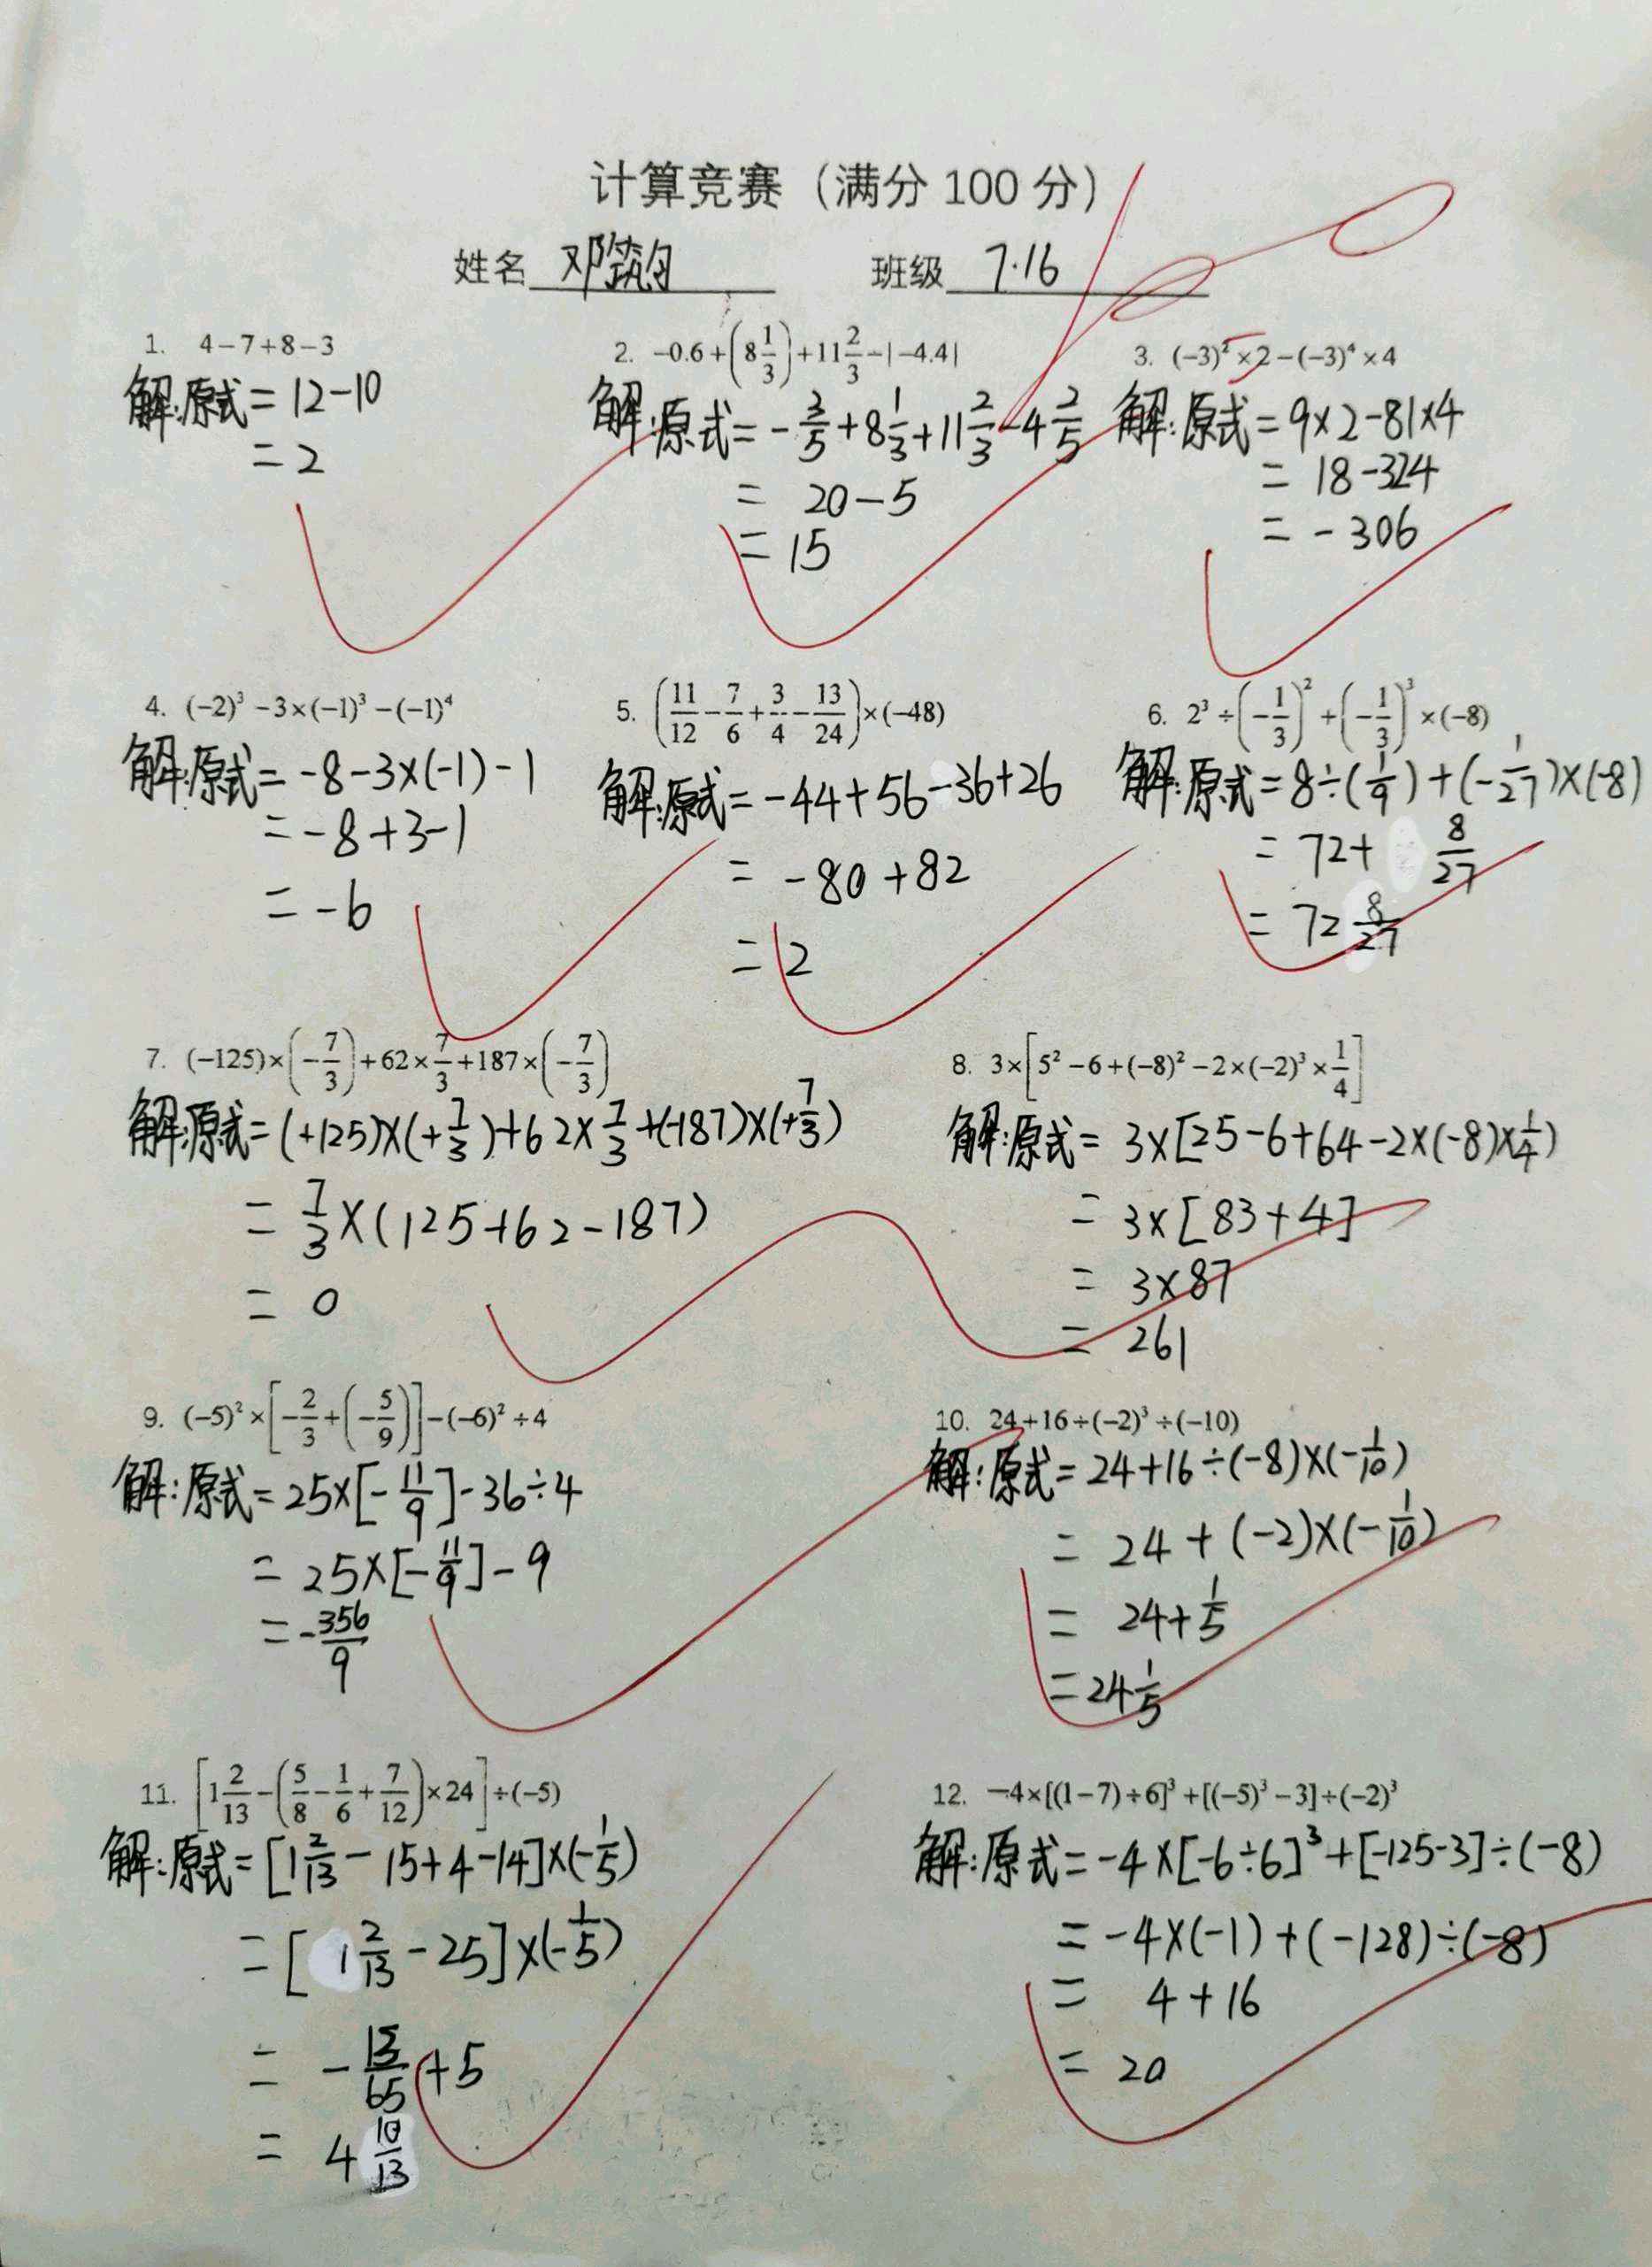 计算竞赛（满分 100 分）
姓名 邓筑匀 班级 7.16
1. 4−7+8−3
解:原式=12-10
=2
2. −0.6+(8 1/3)+11 2/3−|−4.4|
解:原式=-3/5+8 1/3+11 2/3-4 2/5
= 20-5
=15
3. (−3)²×2−(−3)⁴×4
解:原式=9×2-81×4
= 18-324
= -306
4. (−2)³−3×(−1)³−(−1)⁴
解:原式=-8-3×(-1)-1
=-8+3-1
=-6
5. (11/12−7/6+3/4−13/24)×(−48)
解:原式=-44+56-36+26
= -80+82
= 2
6. 2³÷(−1/3)²+(−1/3)³×(−8)
解:原式=8÷(1/9)+(-1/27)×(-8)
= 72+ 8/27
= 72 8/27
7. (−125)×(−7/3)+62×7/3+187×(−7/3)
解:原式=(+125)×(+7/3)+62×7/3+(-187)×(+7/3)
= 7/3×(125+62-187)
= 0
8. 3×[5²−6+(−8)²−2×(−2)³×1/4]
解:原式= 3×[25-6+64-2×(-8)×1/4)
= 3×[83+4]
= 3×87
= 261
9. (−5)²×[−2/3+(−5/9)]−(−6)²÷4
解:原式=25×[-11/9]-36÷4
= 25×[-11/9]-9
=-356/9
10. 24+16÷(−2)³÷(−10)
解:原式=24+16÷(-8)×(-1/10)
= 24+(-2)×(-1/10)
= 24+1/5
=24 1/5
11. [1 2/13−(5/8−1/6+7/12)×24]÷(−5)
解:原式=[1 2/13-15+4-14]×(-1/5)
=[ 1 2/13-25]×(-1/5)
= -15/65+5
= 4 10/13
12. −4×[(1−7)÷6]³+[(−5)³−3]÷(−2)³
解:原式=-4×[-6÷6]³+[-125-3]÷(-8)
=-4×(-1)+(-128)÷(-8)
= 4+16
= 20